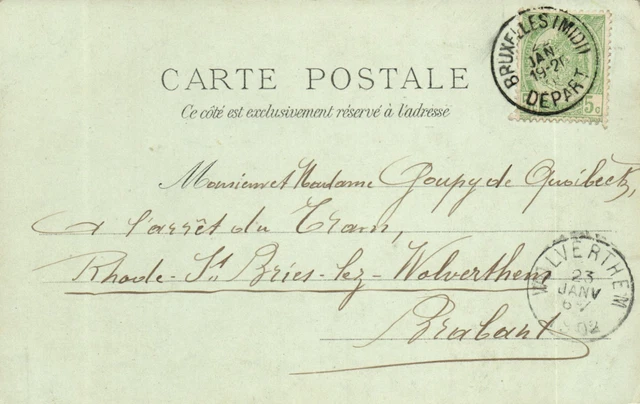 BRUXELLES (MIDI)
JAN
19-20
DEPART
5c
CARTE POSTALE
Ce côté est exclusivement réservé à l'adresse
Monsieur et Madame Goupy de Quoibeck,
à l'arrêt du Tram,
Rhode-St Bries-lez-Wolverthem
Brabant
WOLVERTHEM
23
JANV
02